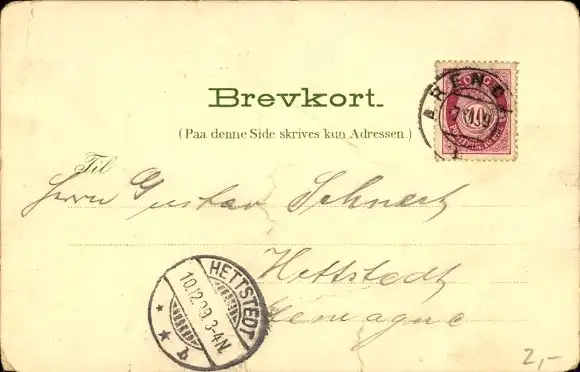 Brevkort.
(Paa denne Side skrives kun Adressen.)
NORGE
ARENDAL
10
Til
Herrn Gustav Schnert
Hettstedt
Allemagne
HETTSTEDT
10.12.99.3-4N.
* * b
2,-